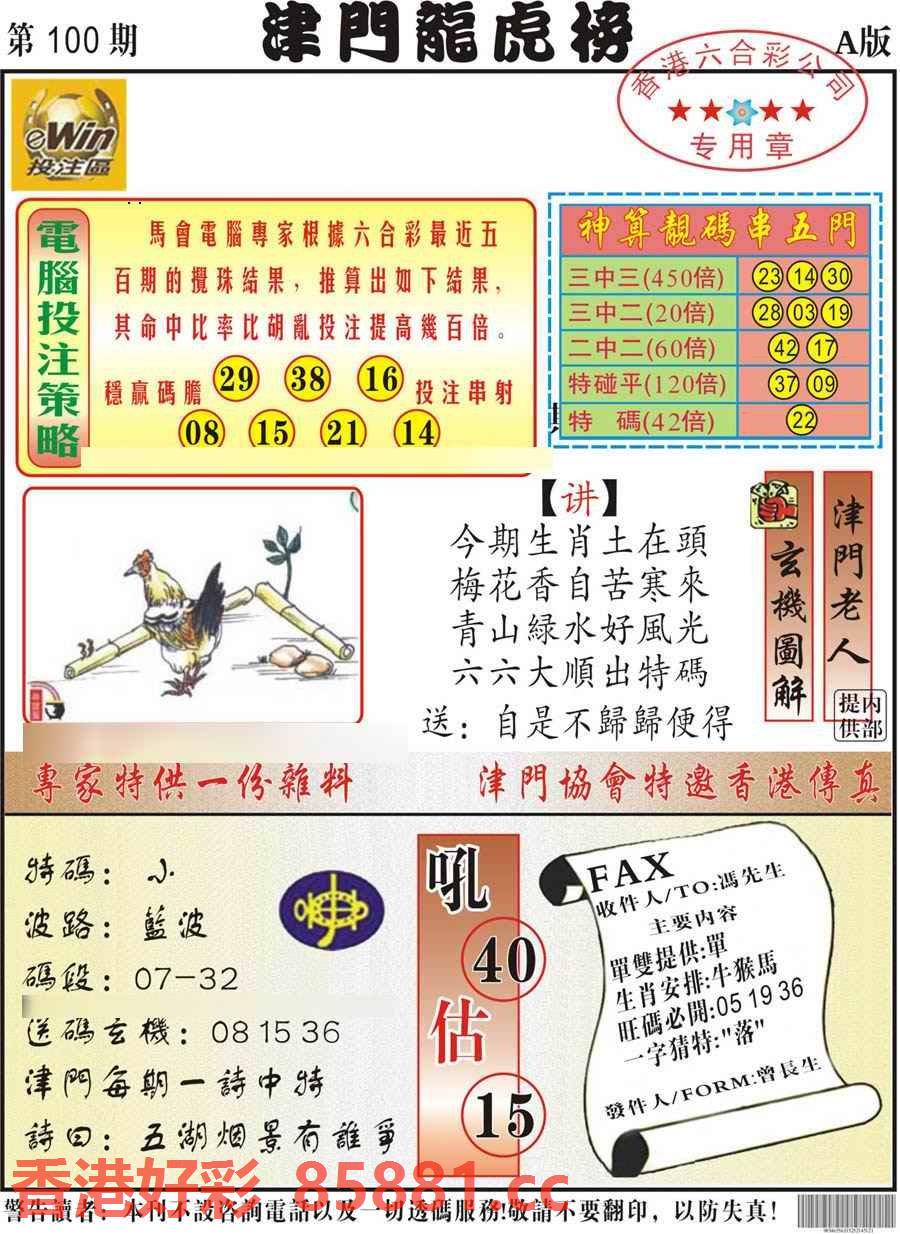 第100期
津門龍虎榜
A版
香港六合彩公司
专用章
eWin
投注區
電腦投注策略
馬會電腦專家根據六合彩最近五
百期的攪珠結果，推算出如下結果，
其命中比率比胡亂投注提高幾百倍。
穩贏碼膽 29 38 16 投注串射
08 15 21 14
神算靚碼串五門
三中三(450倍) 23 14 30
三中二(20倍) 28 03 19
二中二(60倍) 42 17
特碰平(120倍) 37 09
特 碼(42倍) 22
33
【讲】
今期生肖土在頭
梅花香自苦寒來
青山緑水好風光
六六大順出特碼
送：自是不歸歸便得
玄機圖解
津門老人
内部提供
專家特供一份雜料
津門協會特邀香港傳真
特碼：小
波路：藍波
碼段：07-32
送碼玄機：08 15 36
津門每期一詩中特
詩曰：五湖烟景有誰爭
吼
40
估
15
FAX
收件人/TO:馮先生
主要内容
單雙提供:單
生肖安排:牛猴馬
旺碼必開:05 19 36
一字猜特:"落"
發件人/FORM:曾長生
香港好彩 85881.cc
警告讀者：本刊不設咨詢電話以及一切透碼服務!敬請不要翻印，以防失真!